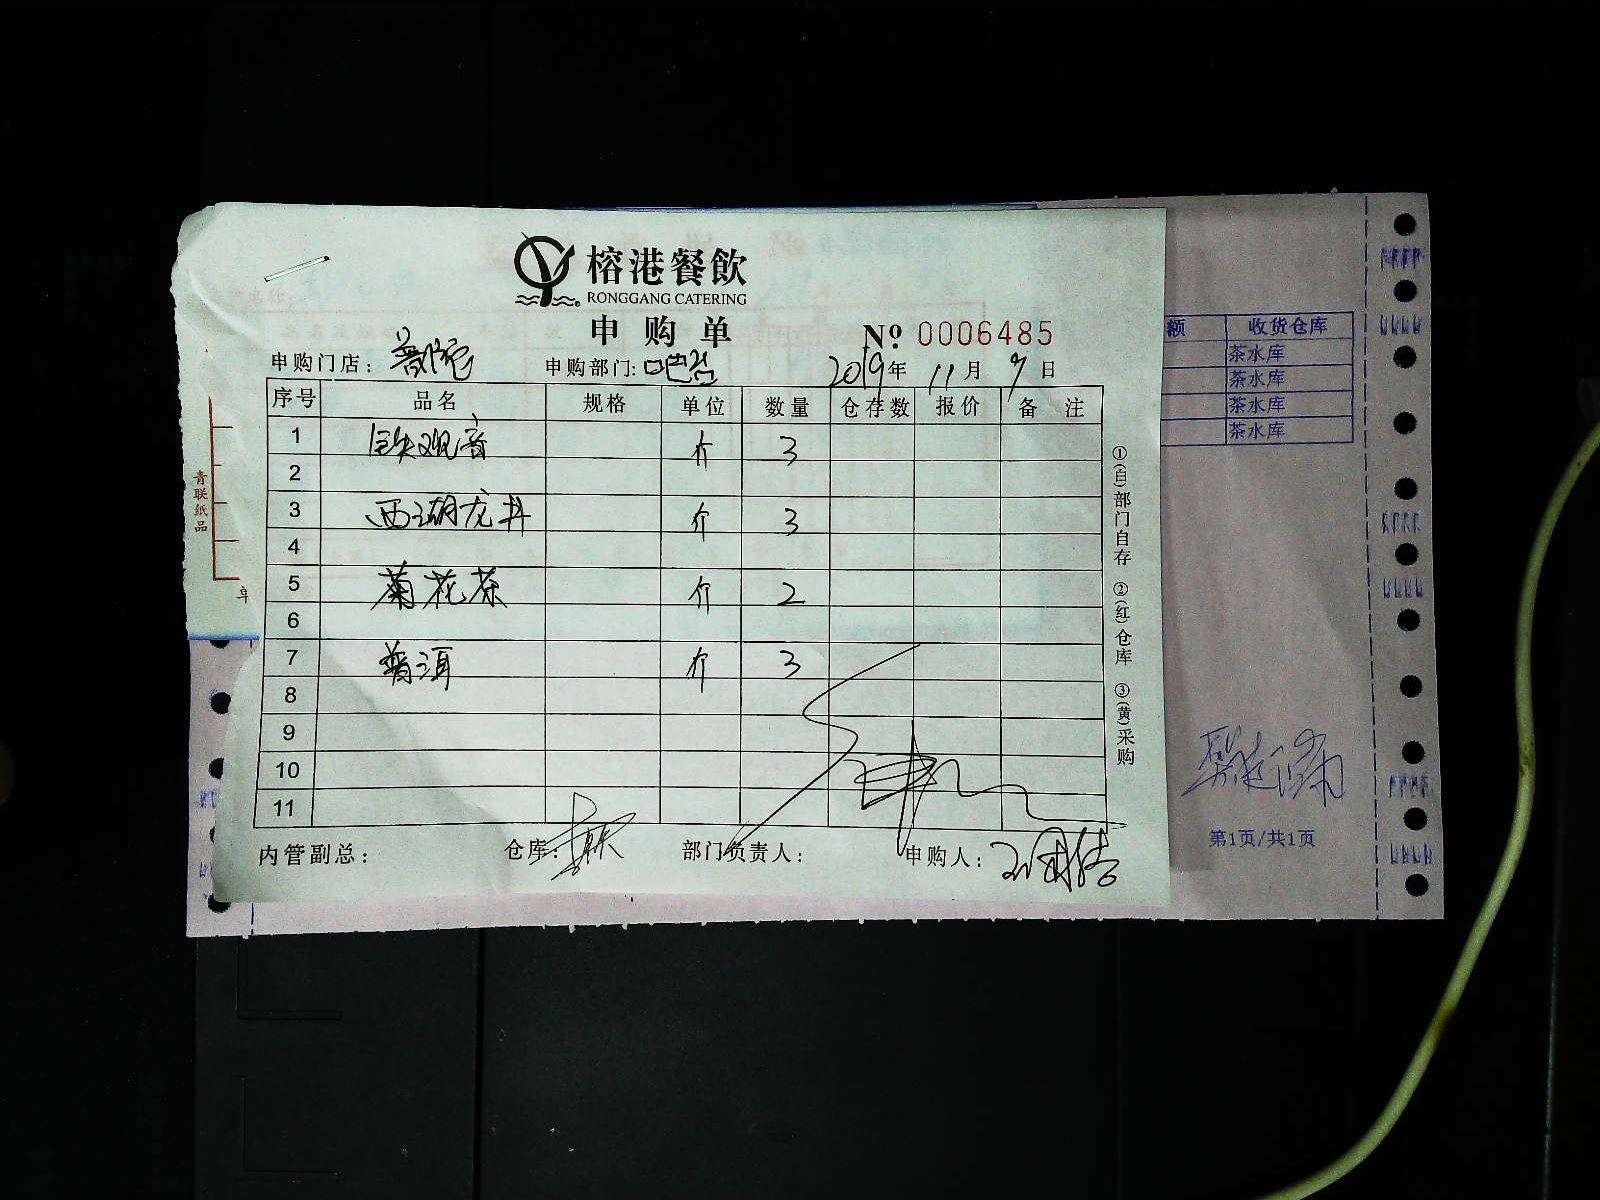 榕港餐飲
RONGGANG CATERING
申购单
№ 0006485
申购门店：普陀 申购部门：吧台 2019年 11月 7日
序号 品名 规格 单位 数量 仓存数 报价 备注
1 铁观音 斤 3
2
3 西湖龙井 斤 3
4
5 菊花茶 斤 2
6
7 普洱 斤 3
8
9
10
11
内管副总： 仓库： 部门负责人： 申购人：
①(白)部门自存 ②(红)仓库 ③(黄)采购
青联纸品
额 收货仓库
茶水库
茶水库
茶水库
茶水库
第1页/共1页